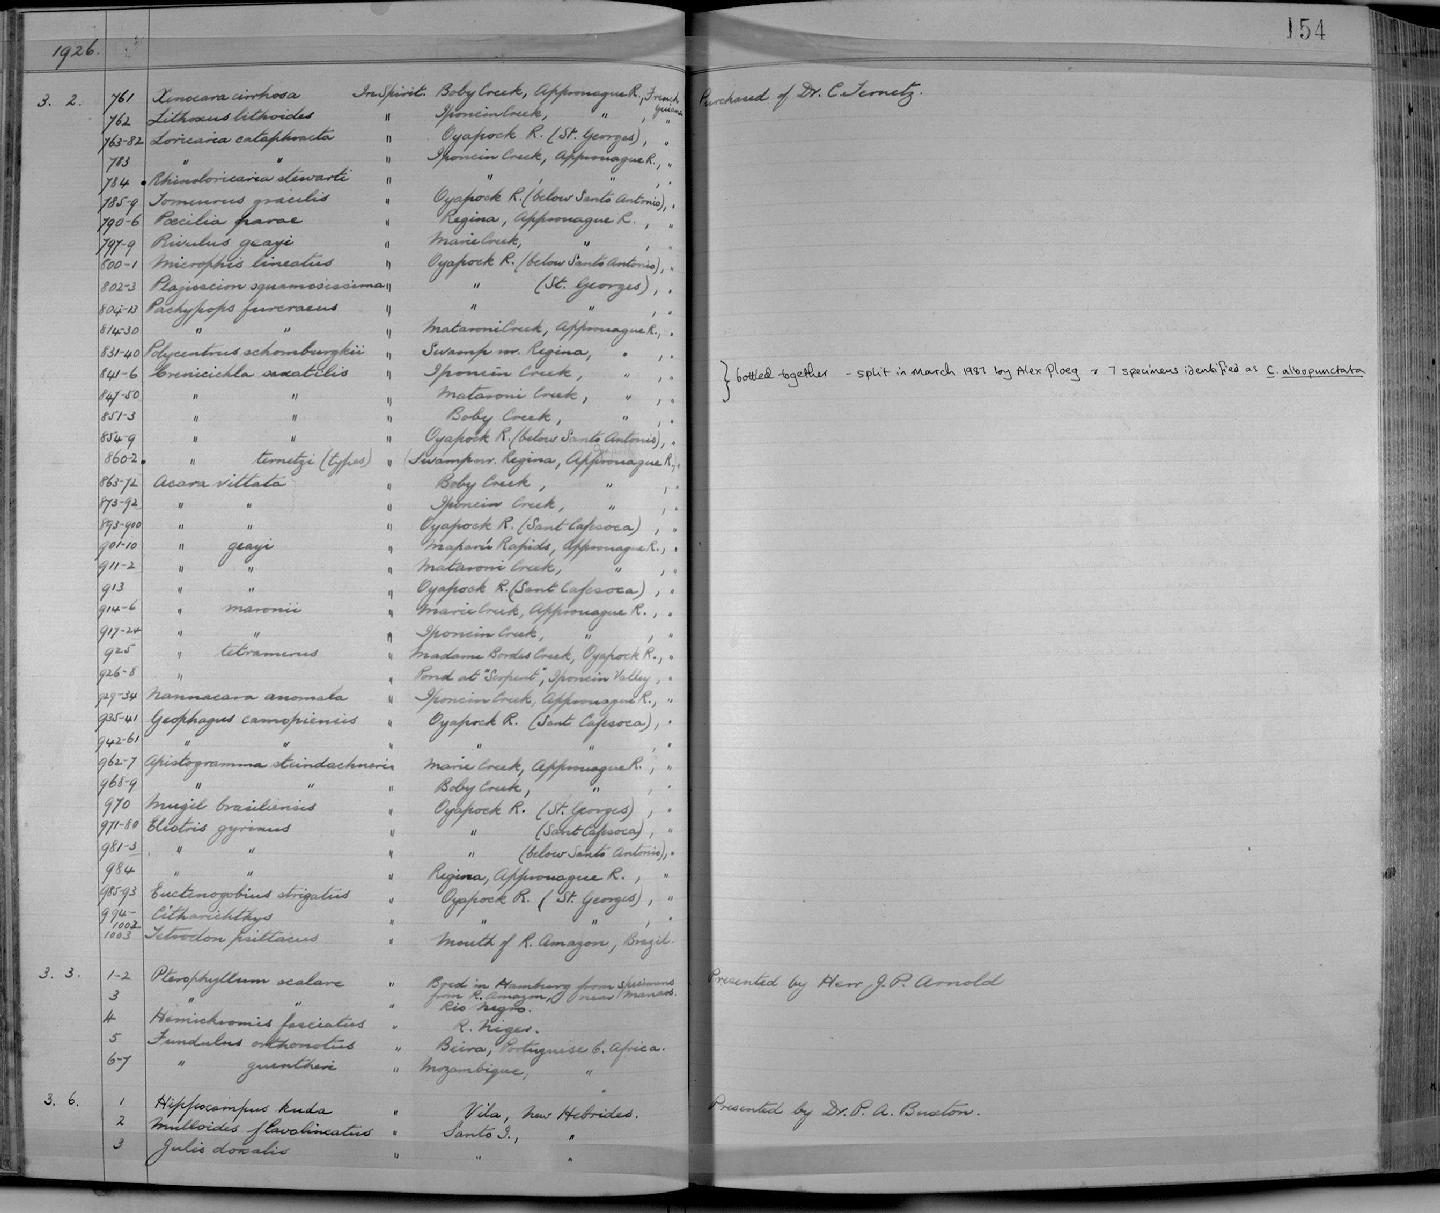 154
1926.
3. 2. 761 Xenocara cirrhosa In Spirit. Boby Creek, Approuague R., French Guiana Purchased of Dr. C. Ternetz.
762 Lithoxus lithoides " Iponcin Creek, " , "
763-82 Loricaria cataphracta " Oyapock R. (St. Georges), "
783 " " " Iponcin Creek, Approuague R., "
784 • Rhinoloricaria stewarti " " , " , "
785-9 Tomeurus gracilis " Oyapock R. (below Santo Antonio), "
790-6 Pœcilia parae " Regina, Approuague R. , "
797-9 Rivulus geayi " Marie Creek, " , "
800-1 Microphis lineatus " Oyapock R. (below Santo Antonio), "
802-3 Plagioscion squamosissima " " (St. Georges), "
804-13 Pachypops furcraeus " " " , "
814-30 " " " Mataroni Creek, Approuague R., "
831-40 Polycentrus schomburgkii " Swamp nr. Regina, " , "
841-6 Crenicichla saxatilis " Iponcin Creek, " , " } bottled together - split in March 1987 by Alex Ploeg 7 specimens identified as C. albopunctata
847-50 " " " Mataroni Creek, " , "
851-3 " " " Boby Creek, " , "
854-9 " " " Oyapock R. (below Santo Antonio), "
860-2 • " ternetzi (types) " (Swamp nr. Regina, Approuague R., "
863-72 Acara vittata " Boby Creek , " , "
873-92 " " " Iponcin Creek, " , "
893-900 " " " Oyapock R. (Sant Cafesoca) , "
901-10 " geayi " Mapari's Rapids, Approuague R., "
911-2 " " " Mataroni Creek, " , "
913 " " " Oyapock R. (Sant Cafesoca) , "
914-6 " maronii " Marie Creek, Approuague R. , "
917-24 " " " Iponcin Creek, " , "
925 " tetramerus " Madame Bordes Creek, Oyapock R., "
926-8 " " Pond at "Serpent", Iponcin Valley , "
929-34 Nannacara anomala " Iponcin Creek, Approuague R., "
935-41 Geophagus camopiensis " Oyapock R. (Sant Cafesoca), "
942-61 " " " " " , "
962-7 Apistogramma steindachneri " Marie Creek, Approuague R. , "
968-9 " " " Boby Creek, " , "
970 Mugil brasiliensis " Oyapock R. (St. Georges) , "
971-80 Eliotris gyrinus " " (Sant Cafesoca) , "
981-3 " " " " (below Santo Antonio), "
984 " " " Regina, Approuague R. , "
985-93 Euctenogobius strigatus " Oyapock R. (St. Georges) , "
994-1002 Citharichthys " " " , "
1003 Tetrodon psittacus " Mouth of R. Amazon, Brazil.
3. 3. 1-2 Pterophyllum scalare " Bred in Hamburg from specimens Presented by Herr J. P. Arnold
from R. Amazon, near Manaos.
3 " " " Rio Negro.
4 Hemichromis fasciatus " R. Niger.
5 Fundulus orthonotus " Beira, Portuguese E. Africa.
6-7 " guentheri " Mozambique, "
3. 6. 1 Hippocampus kuda " Vila, New Hebrides. Presented by Dr. P. A. Buxton.
2 Mulloides flavolineatus " Santo I., "
3 Julis dorsalis " " "